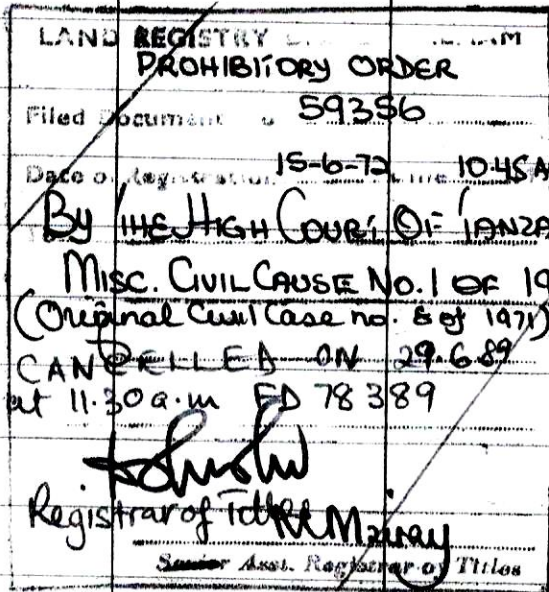 LAND REGISTRY
PROHIBITORY ORDER
Filed Document 59356
Date of Registration 15-6-72 10.45 A
By THE HIGH COURT OF TANZA
MISC. CIVIL CAUSE No. 1 OF 19
(Original Civil Case no. 8 of 1971)
CANCELLED ON 29.6.89
at 11.30 a.m FD 78389
Registrar of Titles
Senior Asst. Registrar of Titles